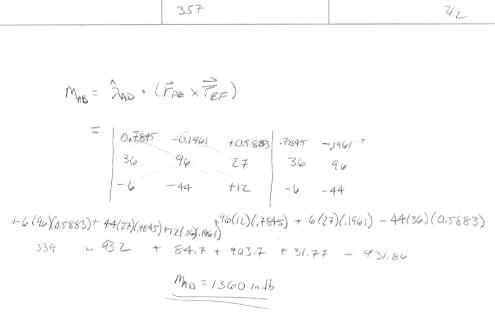 357 2/2
M_AB = λ̂_AD · (r⃗_AE × T⃗_EF)
= | 0.7845 -0.1961 +0.5883 | .7845 -.1961
36 96 27 | 36 96
-6 -44 +12 | -6 -44
+6(96)(0.5883)+44(27)(.7845)+12(36)(.1961) +96(12)(.7845) + 6(27)(.1961) - 44(36)(0.5883)
339 - 932 + 84.7 + 903.7 + 31.77 - 931.86
M_AD = 1360 in lb